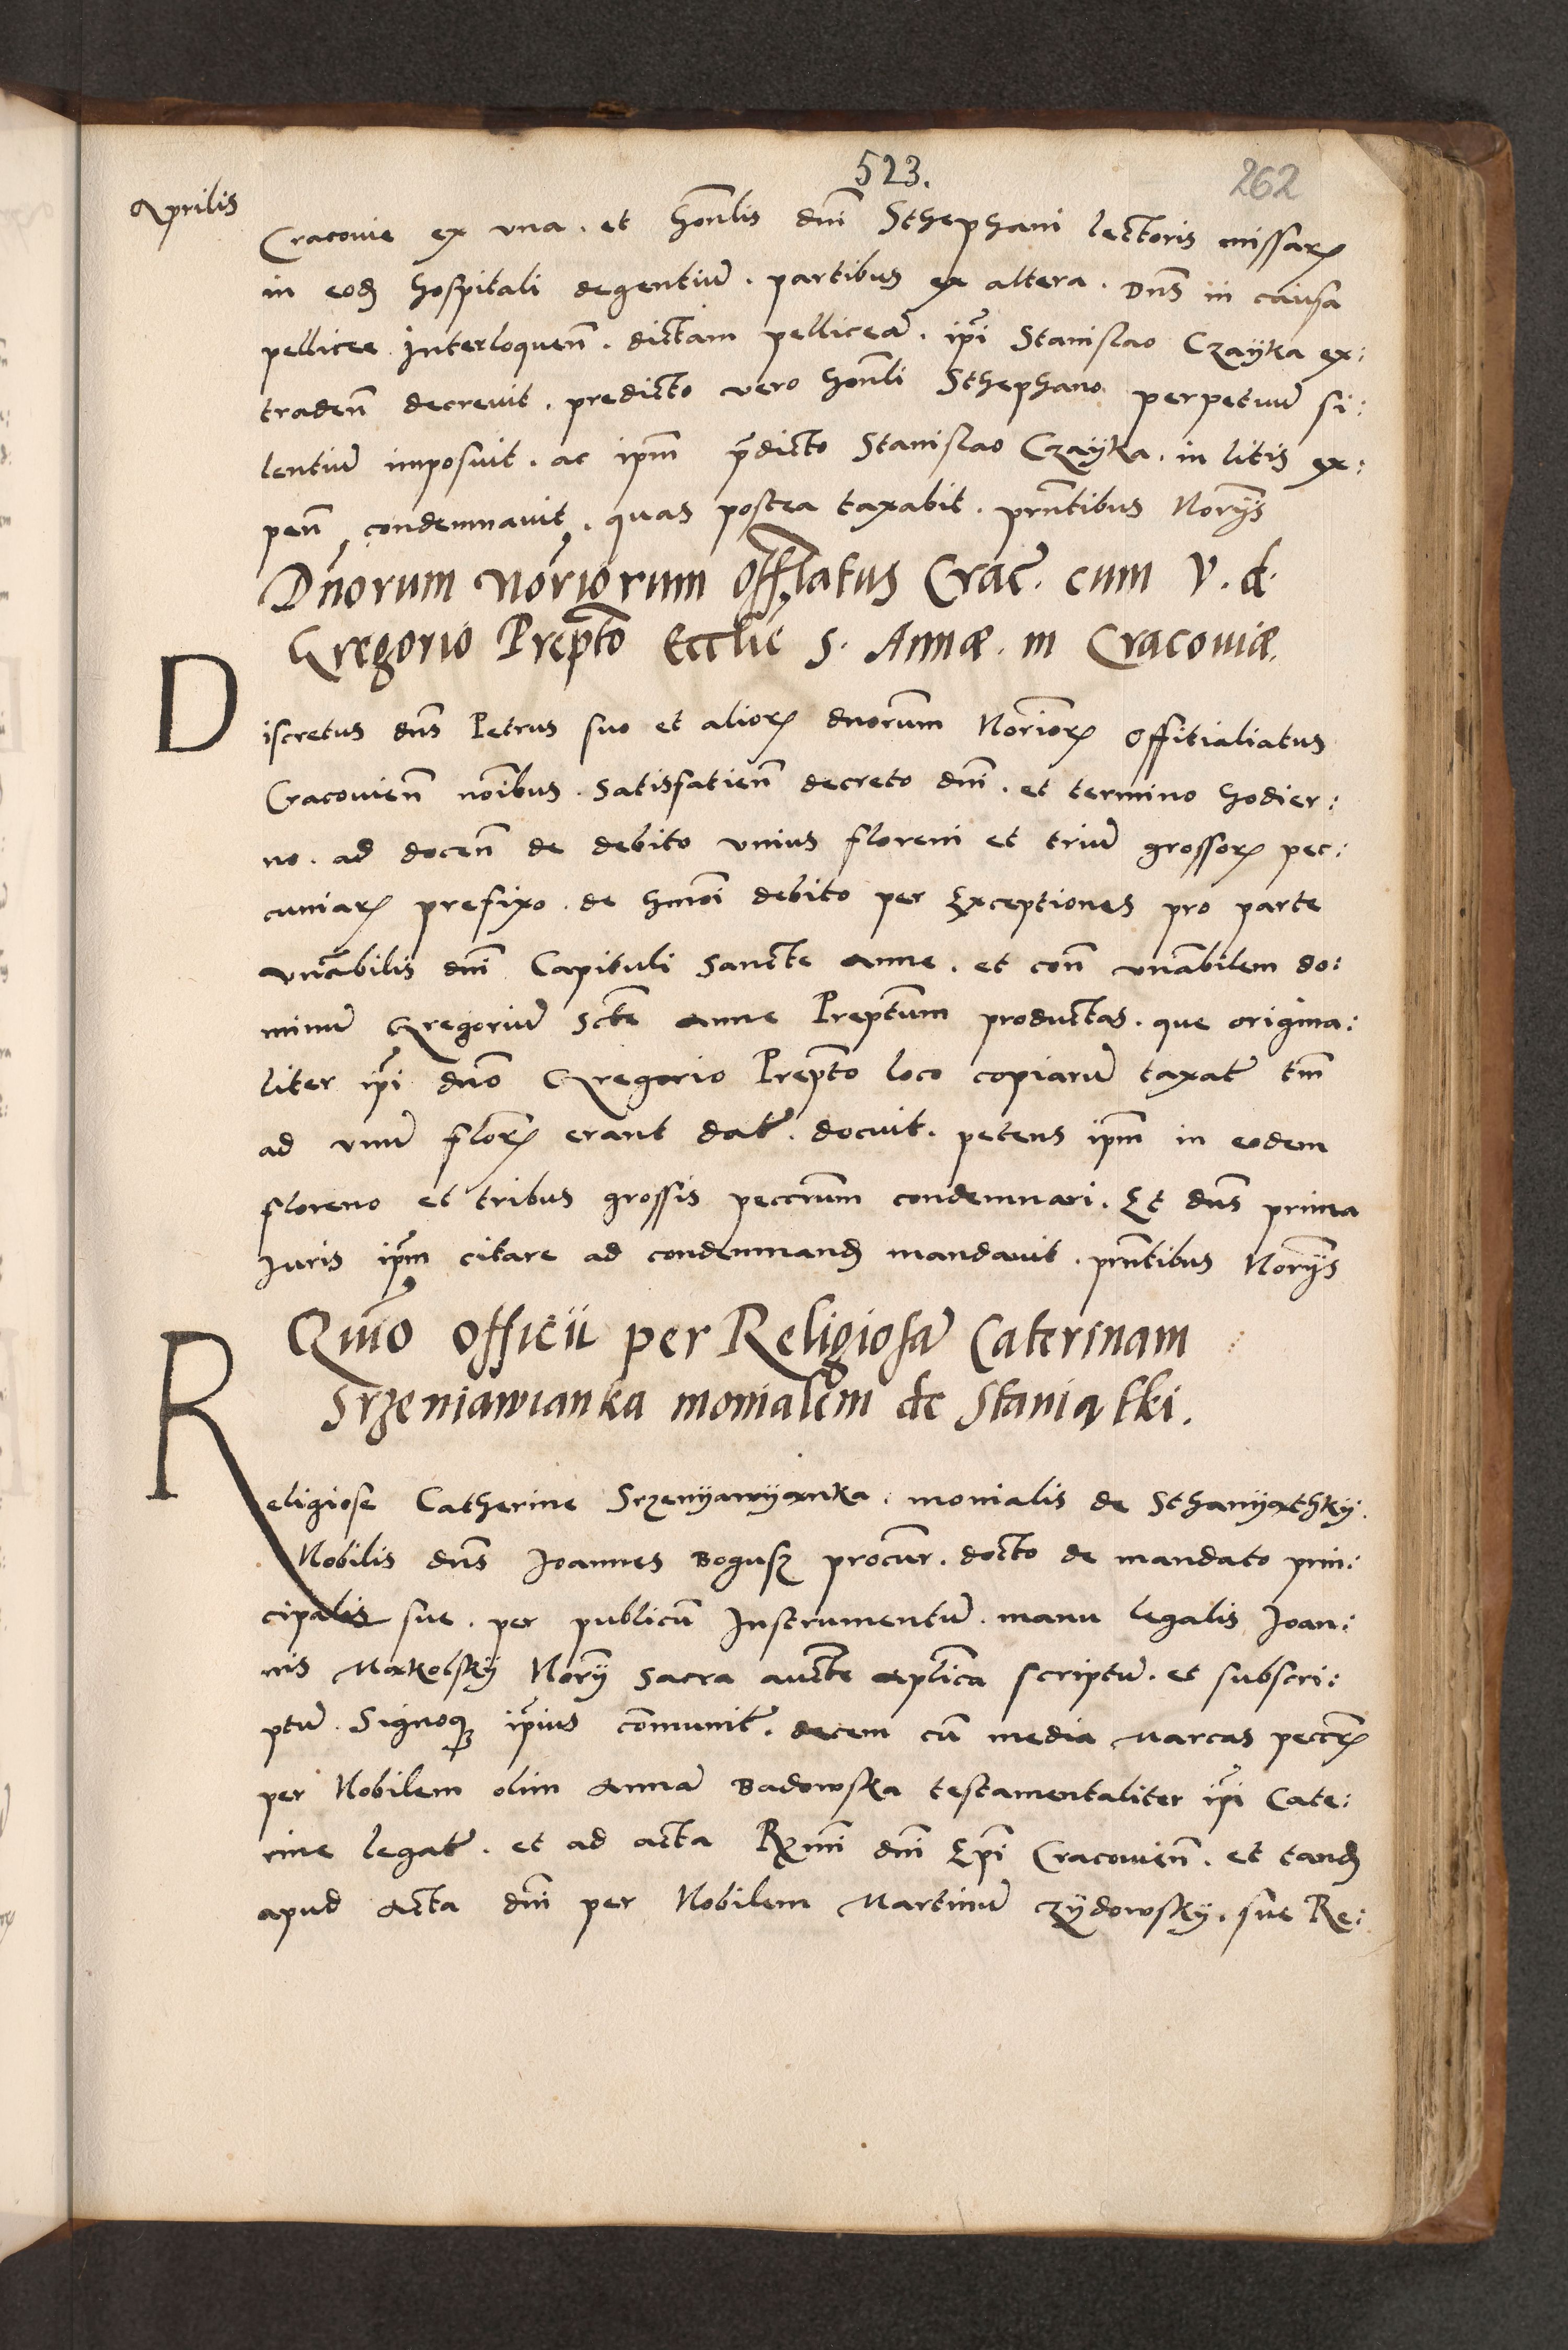 523.
262
Aprilis
Cracovie ex vna. et honlis dni Sthephani lectoris missarꝝ
in eod hospitali degentiū. partibus ex altera. Dns in causa
pellicee Interloquen. dictam pelliceā. ipi Stanislao Czayka ex:
traden decrevit. predicto vero honli Sthephano perpetuū si:
lentiū imposuit. ac ipm pdicto Stanislao Czayka. in litis ex:
pen condemnavit. quas postea taxabit. prntibus Norijs
Dnorum Noriorum Offlatus Crac. cum V. d.
Gregorio Prepto Ecclie S. Annæ. in Cracoviæ.
Discretus dns Petrus suo et aliorꝝ dnorum Noriorꝝ Offitialiatus
Cracovien noibus. Satisfatien decreto dni. et termino hodier:
no. ad docen de debito vnius floreni et triū grossorꝝ pec:
cuniarꝝ prefixo. de hmoi debito per Exceptiones pro parte
vnabilis dni Capituli Sancte Anne. et con vnabilem do:
minū Gregoriū Scte Anne Preptum productas. que origina:
liter ipi dno Gregorio Prepto loco copiarū taxat tm
ad vnū florꝝ erant dat. docuit. petens ipm in eodem
floreno et tribus grossis peccrum condemnari. Et dns prima
Iuris ipm citare ad condemnand mandavit. prntibus Norijs
Quio Officii per Religiosā Caterinam
Srzeniawianka monialem de Staniątki.
Religiose Catherine Srzenyawyanka. monialis de Sthanyathky.
Nobilis dns Joannes Bogusz procur. docto de mandato prin:
cipalis sue. per publicū Instrumentū. manu legalis Joan:
nis Makolsky Norij Sacra aucte aplica scriptū. et subscri:
ptū. Signoqꝫ ipius comunit. decem cū media Marcas peccrꝝ
per Nobilem olim Annā Badowska testamentaliter ipi Cate:
rine legat. et ad acta Rzmi dni Epi Cracovien. et tand
apud Acta dni per Nobilem Martinū Czydowsky. sue Re: